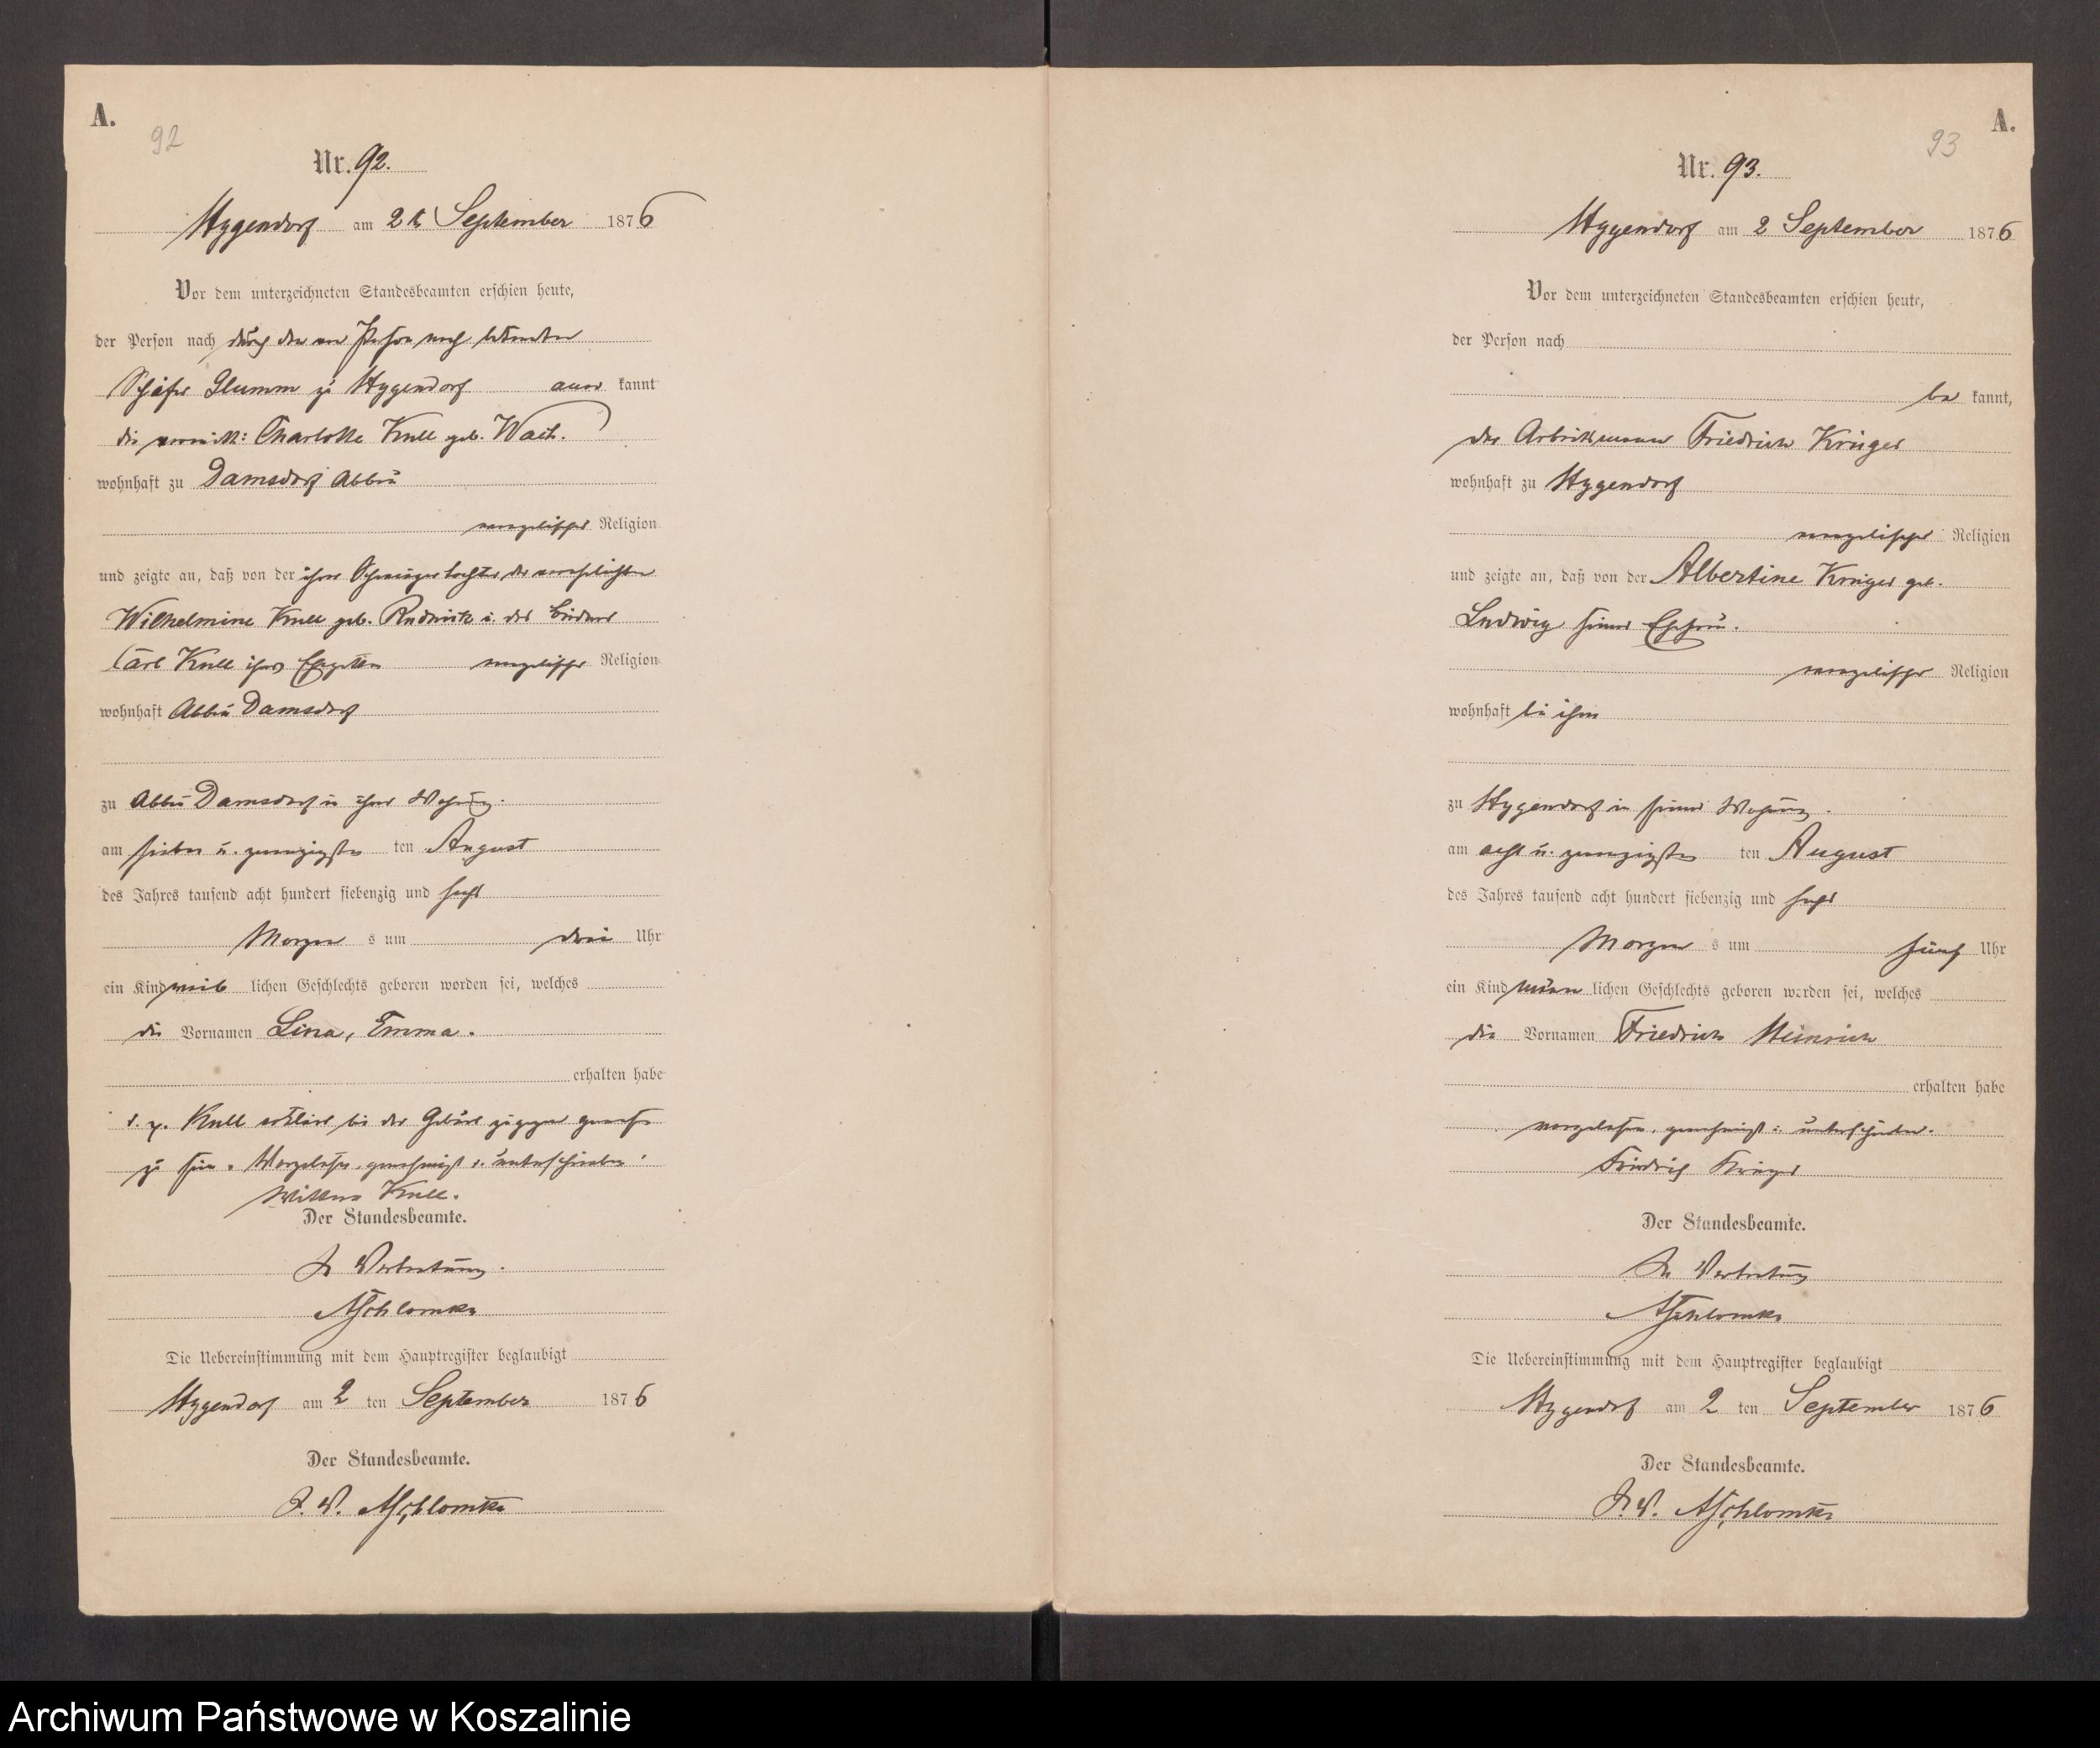 A.
92
Nr. 92.
Hygendorf am 2t September 1876
Vor dem unterzeichneten Standesbeamten erschien heute,
der Person nach durch den von Person noch bekannten
Schäfer Glumm zu Hygendorf aner kannt
die Charlotte Kull geb.
wohnhaft zu Damsdorf Abbau
evangelischer Religion
und zeigte an, daß von der ihrer Schwiegertochter, der verehelichten
Wilhelmine Kull geb. Rudnick u. des Büdner
Carl Kull ihres Ehegatten evangelischer Religion
wohnhaft Abbau Damsdorf
zu Abbau Damsdorf in ihrer Wohnung.
am sieben u. zwanzigsten ten August
des Jahres tausend acht hundert siebenzig und sechs
Morgen s um drei Uhr
ein Kind weib lichen Geschlechts geboren worden sei, welches
die Vornamen Lina, Emma.
erhalten habe
Kull erklärt bei der Geburt zugegen gewesen
zu sein. Vorgelesen, genehmigt u. unterschrieben.
Wittwe Kull.
Der Standesbeamte.
In Vertretung.
Aschlomke
Die Uebereinstimmung mit dem Hauptregister beglaubigt
Hygendorf am 2 ten September 1876
Der Standesbeamte.
I. V. Aschlomke
A.
93
Nr. 93.
Hygendorf am 2 September 1876
Vor dem unterzeichneten Standesbeamten erschien heute,
der Person nach
be kannt,
der Arbeitsmann Friedrich Krüger
wohnhaft zu Hygendorf
evangelischer Religion
und zeigte an, daß von der Albertine Krüger geb.
Ludwig seiner Ehefrau.
evangelischer Religion
wohnhaft bei ihm
zu Hygendorf in seiner Wohnung.
am acht u. zwanzigsten ten August
des Jahres tausend acht hundert siebenzig und sechs
Morgen s um fünf Uhr
ein Kind männ lichen Geschlechts geboren worden sei, welches
die Vornamen Friedrich Heinrich
erhalten habe
vorgelesen, genehmigt u. unterschrieben.
Friedrich Krüger
Der Standesbeamte.
In Vertretung
Aschlomke
Die Uebereinstimmung mit dem Hauptregister beglaubigt
Hygendorf am 2 ten September 1876
Der Standesbeamte.
I. V. Aschlomke
Archiwum Państwowe w Koszalinie